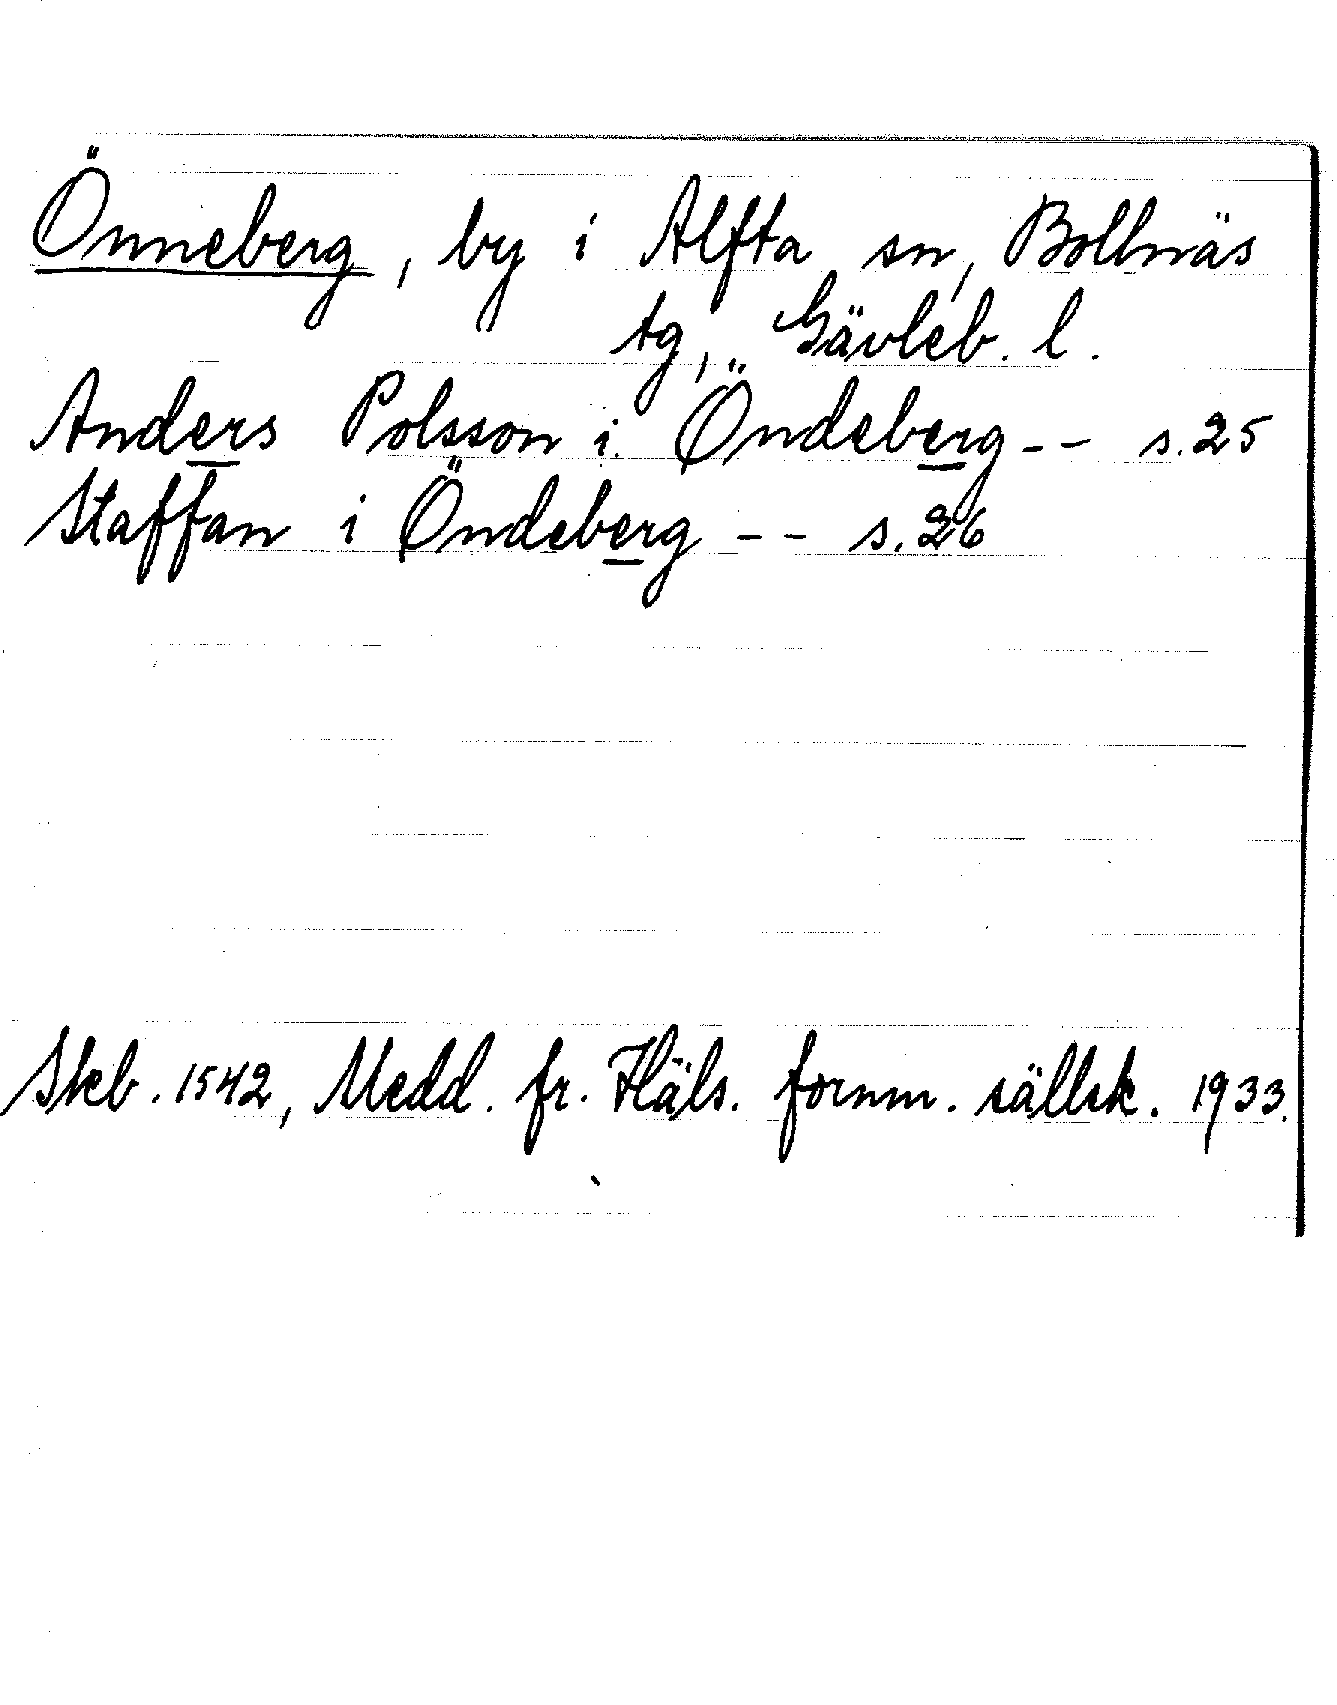 Önneberg, by i Alfta sn, Bollnäs
tg, Gävleb. l.
Anders Polsson i Öndeberg -- s. 25
Staffan i Öndeberg -- s. 26
Skeb. 1542, Medd. fr. Häls. fornm. sällsk. 1933.